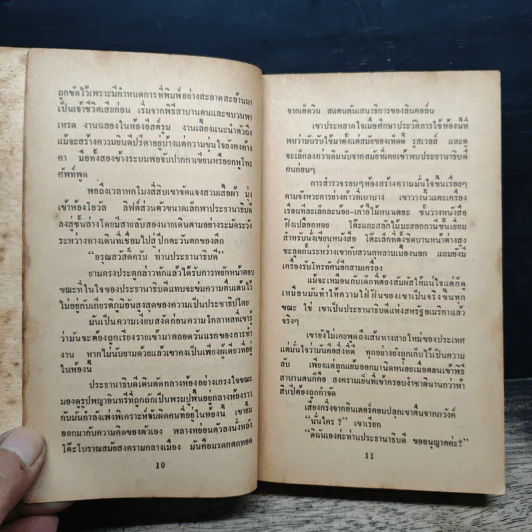 ถูกขัดไว้เพราะมีกำหนดการที่พิมพ์อย่างสะอาดสะอ้านมา
เป็นเจ้าชีวิตเสียก่อน เริ่มจากพิธีสาบานตนและขบวนพา
เหรด งานฉลองในห้องอีสต์รูม งานเลี้ยงแนะนำตัวถึง
แม้จะสร้างความยินดีปรีดาอยู่บ้างแต่ความขุ่นใจยังคงค้าง
คา มือทั้งสองข้างระบมพอจับปากกาเขียนหรือยกหูโทร
ศัพท์พูด
พอถึงเวลาหกโมงสี่สิบเขาจัดแจงสวมเสื้อผ้า มุ่ง
เข้าห้องโอวัล ลิฟต์ส่วนตัวขนาดเล็กพาประธานาธิบดี
ลงสู่ชั้นล่างโดยมีสายลับสองนายเดินตามอย่างระมัดระวัง
ระหว่างทางเดินที่เชื่อมไปสู่ ปีกตะวันตกของตึก
“อรุณสวัสดิ์ครับ ท่านประธานาธิบดี”
ยามตรงประตูกล่าวทักแล้วได้รับการพยักหน้าตอบ
ขณะที่ในใจของประธานาธิบดีแทบจะข่มความตื่นเต้นไว้
ไม่อยู่กับเกียรติภูมิอันสูงสุดของความเป็นประชาธิปไตย
มันเป็นความเงียบสงัดก่อนความโกลาหลที่เขารู้
ว่ามันจะต้องถูกเรียงรายเข้ามาตลอดวันแรกของการทำ
งาน หากไม่นับยามด้วยแล้วเขาคงเป็นเพียงผู้เดียวที่อยู่
ในห้องนี้
ประธานาธิบดีเดินตัดกลางห้องอย่างเกรงใจขณะ
มองดูรูปพญาอินทรีที่ถูกถักเป็นพรมปูพื้นอยู่กลางห้องราว
กับมันกำลังเพ่งพิเคราะห์จับผิดคนที่อยู่ในห้องนี้ เขายิ้ม
ออกมากับความคิดของตัวเอง พลางหย่อนตัวลงนั่งหลัง
โต๊ะโบราณสมัยสงครามกลางเมือง มันคือมรดกตกทอด
10
จากเอ็ดวิน สแตนตันเสนาธิการของลินคอล์น
เขาประหลาดใจเมื่อศึกษาประวัติการใช้ห้องนี้ที่
พบว่ามันรับใช้มาตั้งแต่สมัยของเท็ดดี้ รุสเวลล์ และดู
จะเล็กลงกว่าเดิมนับจากสมัยที่เคยเข้าพบประธานาธิบดี
คนก่อนๆ
การสำรวจรอบๆห้องสร้างความมั่นใจขึ้นเรื่อยๆ
ตามจังหวะการย่างก้าวที่เบาบาง เขาวางนิ้วแตะเครื่อง
เรือนทีละเล็กละน้อย-เก้าอี้ไม้หนาเตอะ ชั้นวางหนังสือ
ฝังเปลือกหอย โต๊ะแกะสลักไม้มะฮอกกานีชั้นเยี่ยม
สำหรับนั่งเขียนหนังสือ โต๊ะเล็กที่ตั้งชิดบานหน้าต่างสูง
ชะลูดกั้นระหว่างเขากับสวนกุหลาบเบื้องนอก แถมยังมี
เครื่องรับโทรทัศน์อีกสามเครื่อง
แม้จะเหมือนกับเด็กที่ต้องสัมผัสให้แน่ใจแต่ก็ดู
เหมือนมันทำให้ความใฝ่ฝันของเขาเป็นจริงขึ้นทุก
ขณะ ใช่ เขาเป็นประธานาธิบดีแห่งสหรัฐอเมริกาแล้ว
จริงๆ
เขายังไม่เคยพูดถึงเส้นทางสายใหม่ของประเทศ
แต่มั่นใจว่ามันคือสิ่งที่ดี ทุกอย่างยังถูกเก็บไว้เป็นความ
ลับ เพียงแต่ถูกแย้มออกมานิดหน่อยเมื่อตอนเข้าพิธี
สาบานตนก็คือ สงครามเย็นที่เข้าครองงำชาตินานกว่าห้า
สิบปีต้องถูกกำจัด
เสียงกริ่งจากอินเตอร์คอมปลุกเขาตื่นจากภวังค์
“นั่นใคร ?” เขาเรียก
“ดิฉันเองค่ะท่านประธานาธิบดี ขออนุญาตค่ะ?”
11